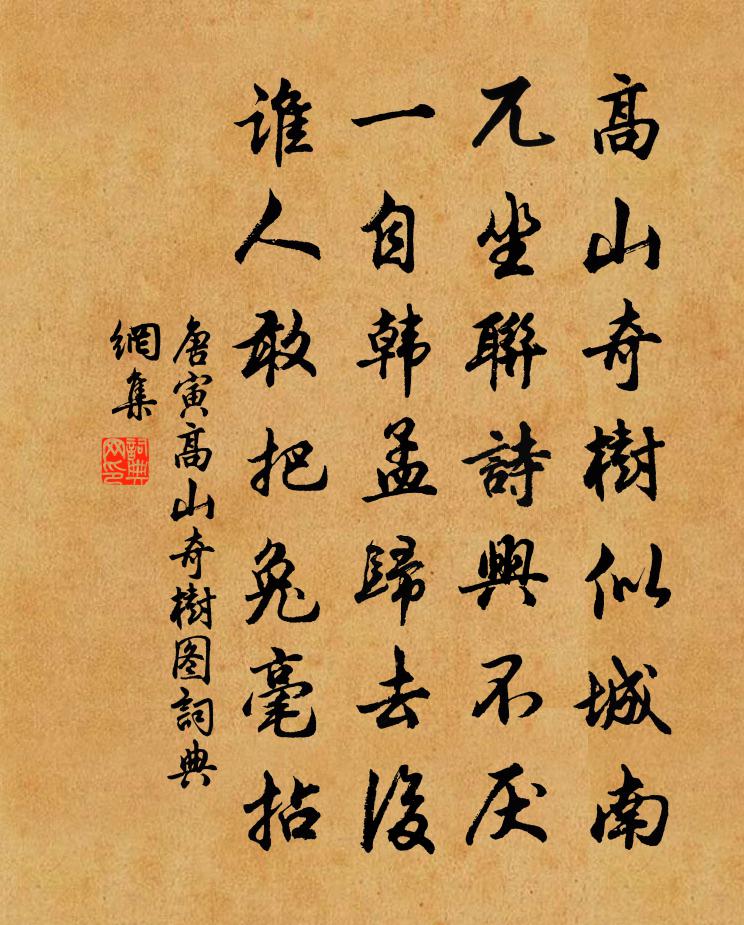 高山奇樹似城南
兀坐聯詩興不厌
一自韩孟歸去後
谁人敢把兔毫拈
唐寅高山奇樹图詞典
網集
詞典
网印